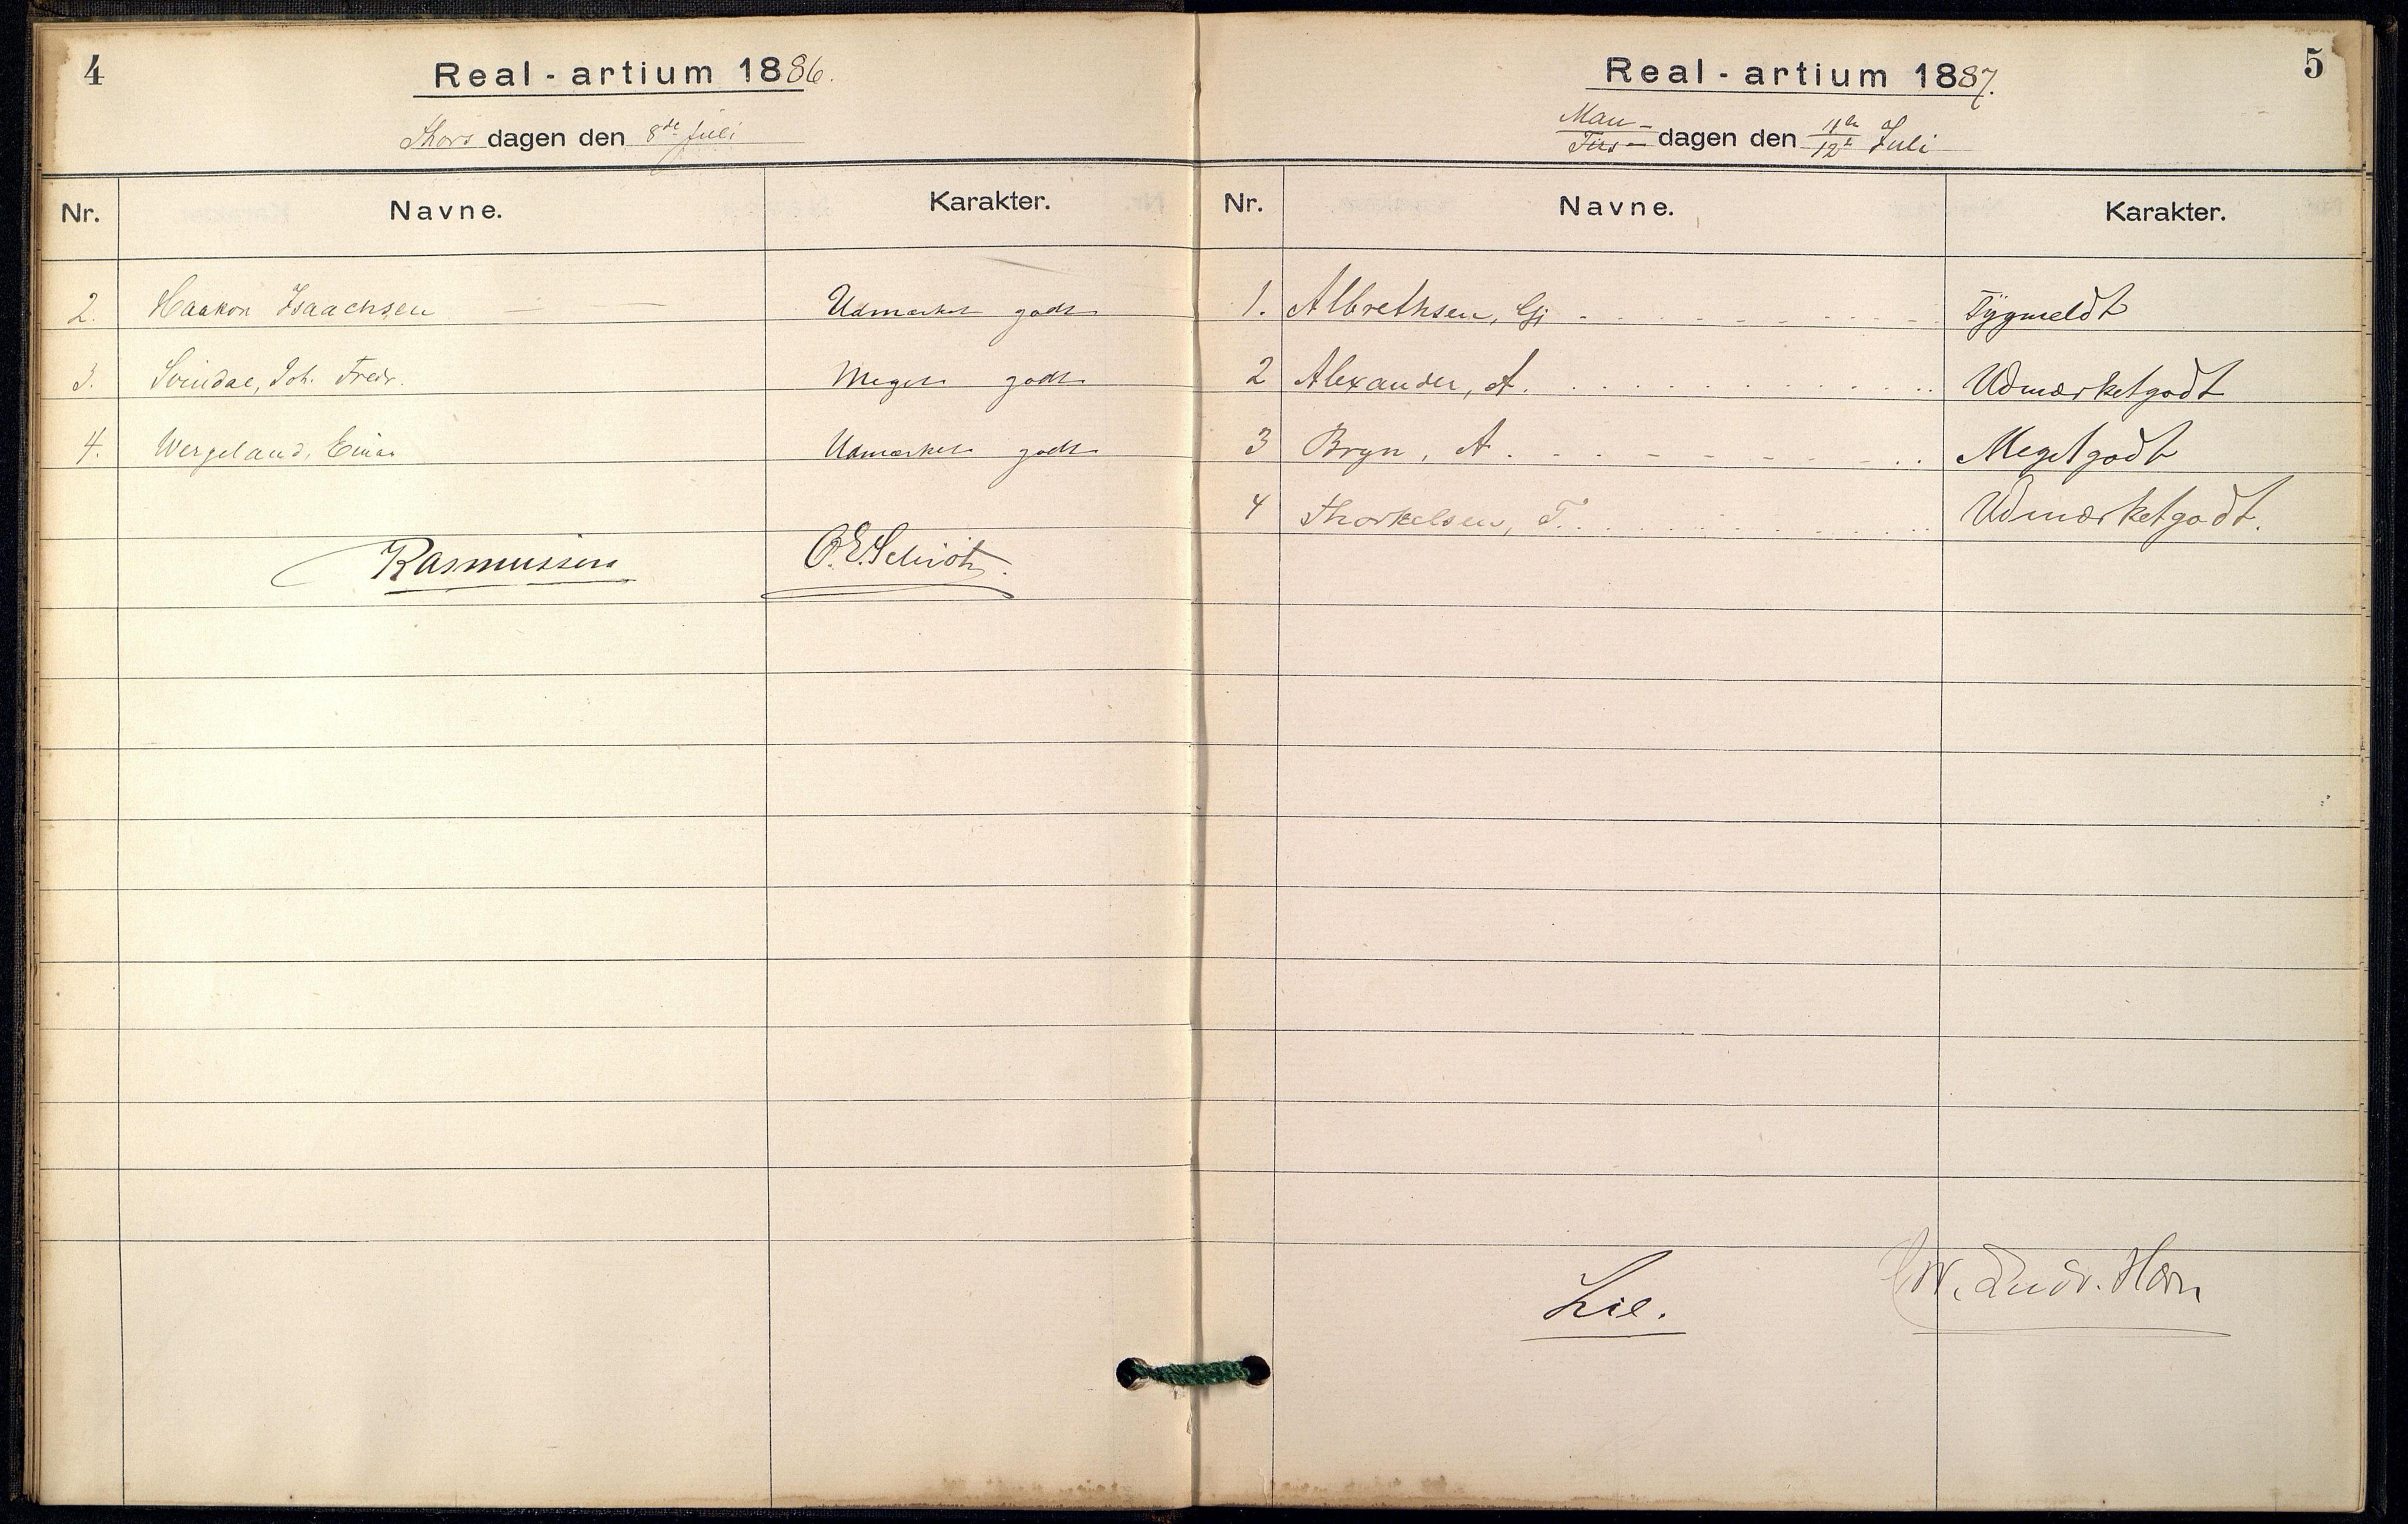 4
Real-artium 1886.
Thors dagen den 8de Juli
Nr. Navne. Karakter.
2. Haakon Isaachsen Udmærket godt
3. Svindal, Joh. Fredr. Meget godt
4. Wergeland, Einar Udmærket godt
Rasmussen O.E. Schiøtz.
5
Real-artium 1887.
Man-
Tirs- dagen den 11te
12te Juli
Nr. Navne. Karakter.
1. Albrethsen, Gj Sygmeldt
2 Alexander, A. Udmærketgodt
3 Bryn, A. Megetgodt
4 Thorkelsen, T. Udmærketgodt.
Lie. Andr. Horn